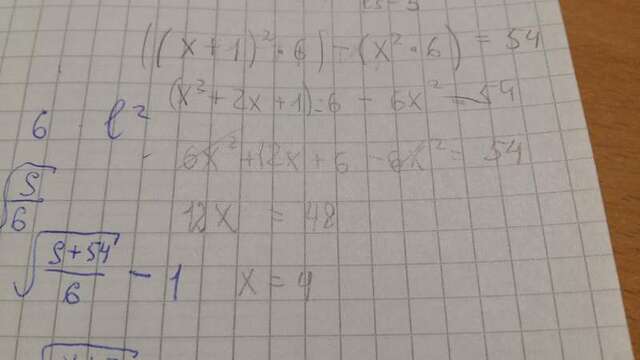 ((x+1)²·6)-(x²·6)=54
(x²+2x+1)·6-6x²=54
6·l²
6x²+12x+6-6x²=54
√(S/6)
12x=48
√((S+54)/6)-1
x=4